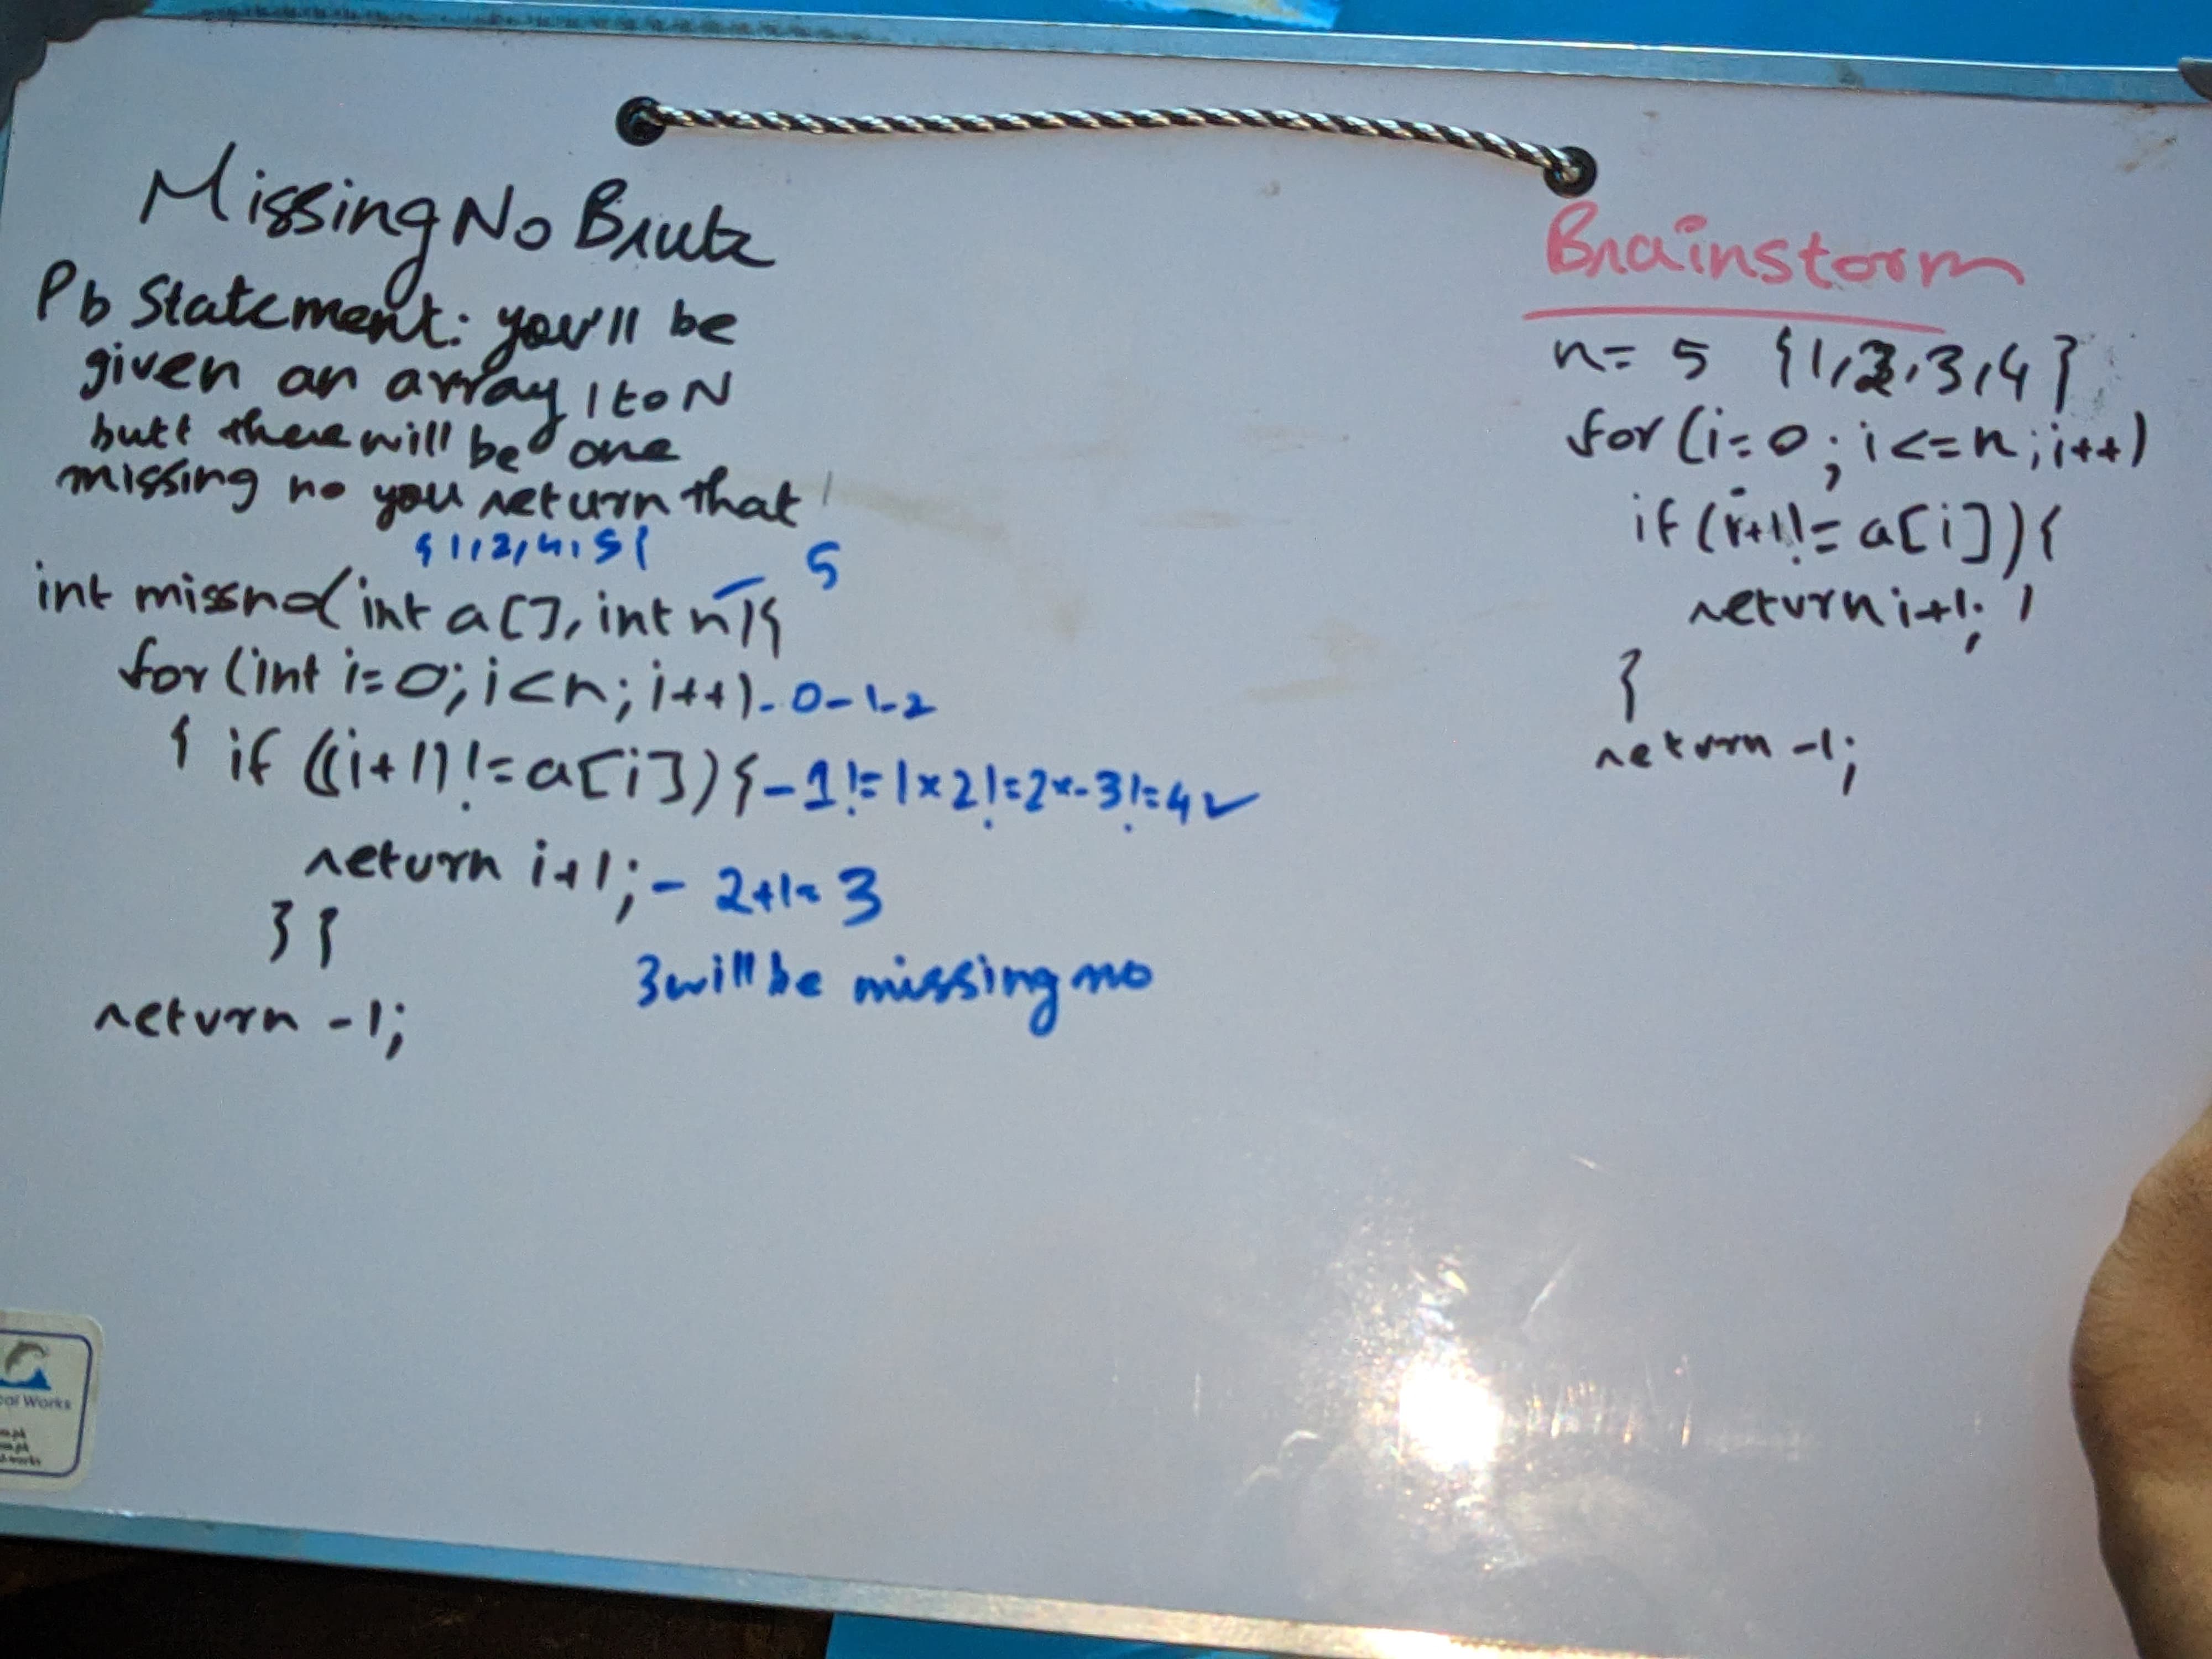 Missing No Brute
Pb Statement: you'll be
given an array 1 to N
butt there will be one
missing no you return that
{1,2,4,5{ 5
int missno(int a[], int n){
for (int i=0; i<n; i++) - 0-1-2
{ if ((i+1) != a[i]) { - 1!=1 x 2!=2 x - 3!=4 ✓
return i+1; - 2+1= 3
}}
3 will be missing no
return -1;
Brainstorm
n= 5 {1,2,3,4}
for (i=0; i<=n; i++)
if (i+1!= a[i]) {
return i+1; )
}
return -1;